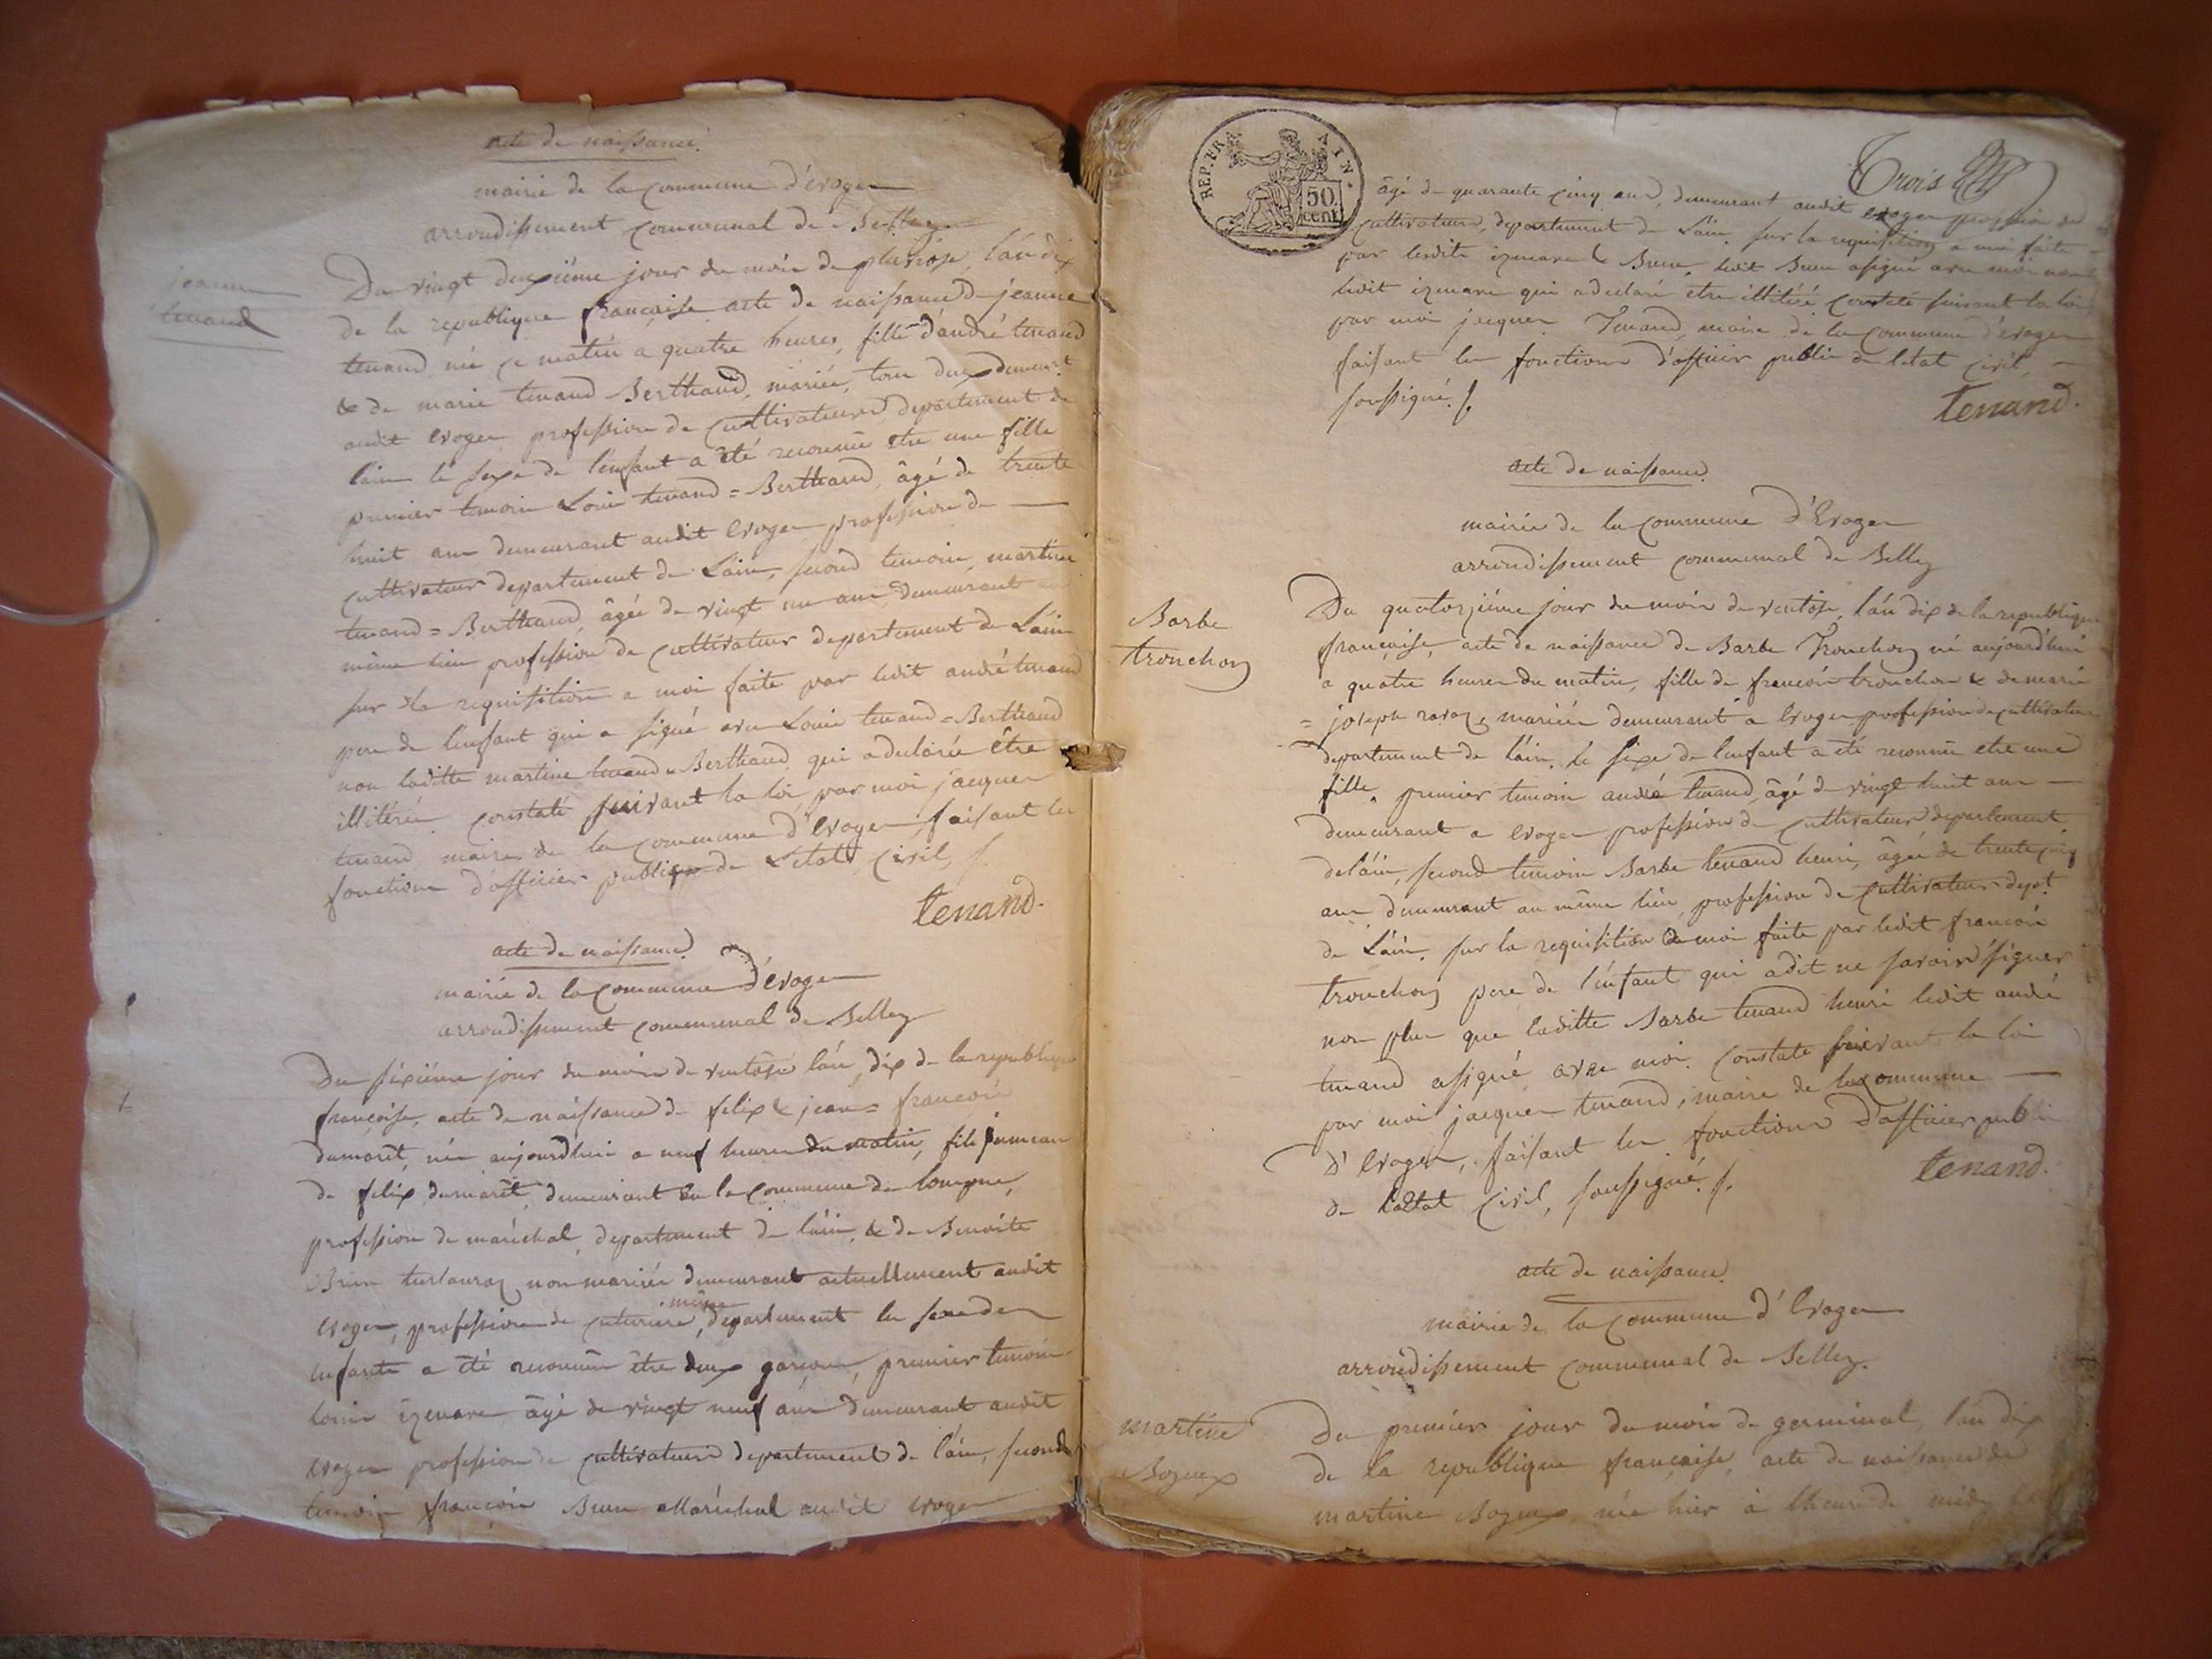 acte de naissance
mairie de la commune d'evoges
arrondissement communal de Belley
jeanne
tenand
Du vingt deuxiéme jour du mois de pluviose, l'an dix
de la republique française acte de naissance de jeanne
tenand née ce matin a quatre heures, fille d'andré tenand
& de marie tenand Berthaud, mariés, tous deux demeurt
audit evoges profession de cultivateurs, departement de
l'ain le sexe de l'enfant a été reconnu etre une fille
premier temoin Louis tenand=Berthaud, âgé de trente
huit ans demeurant audit Evoges profession de
cultivateur departement de L'ain, second temoin, martine
tenand=Berthaud, âgée de vingt un ans, demeurant au
même lieu profession de cultivateur departement de L'ain
sur la requisition a moi faite par ledit andré tenand
pere de l'enfant qui a signé avec Louis tenand=Berthaud
non laditte martine tenand=Berthaud qui a declarée être
illitérée constaté suivant la loi par moi jacques
tenand maire de la commune d'Evoges, faisant les
fonctions d'officier public de L'etat civil,
tenand.
acte de naissance
mairie de la commune d'evoges
arrondissement communal de Belley
Du sixiéme jour du mois de ventose l'an dix de la republique
française, acte de naissance de felix & jean=françois
dumarêt, nés aujourd'hui a neuf heures du matin, fils jumeaux
de felix dumarêt, demeurant en la commune de
profession de maréchal, departement de l'ain, & de Benoite
Brun non mariée demeurant actuellement audit
même
evoges, profession de departement les sexe des
enfants a été reconnu être deux garçons, premier temoin
louis izenave âgé de vingt neuf ans demeurant audit
evoges profession de cultivateur departement de l'ain, second
temoin françois Brun Maréchal audit evoges
REP. FRA.
AIN.
50
cent.
Trois
âgé de quarante cinq ans, demeurant audit evoges profession de
cultivateur, departement de L'ain. sur la requisition a moi faite
par lesdits izenave & Brun, ledit Brun a signé avec moi non
ledit izenave qui a declaré etre illitéré constaté suivant la loi
par moi jacques Tenand, maire de la commune d'evoges
faisant les fonctions d'officier public de l'etat civil,
soussigné.
tenand.
acte de naissance
mairie de la commune d'Evoges
arrondissement communal de Belley
Barbe
tronchon
Du quatorziéme jour du mois de ventose, l'an dix de la republique
française, acte de naissance de Barbe Tronchon né aujourd'hui
a quatre heures du matin, fille de françois tronchon & de marie
=joseph ravaz, mariés demeurant a Evoges profession de cultivateur
departement de l'ain. le sexe de l'enfant a été reconnu etre une
fille, premier temoin andré tenand, âgé de vingt huit ans
demeurant a evoges profession de cultivateur departement
de l'ain, second temoin Barbe tenand henri, âgée de trente cinq
ans demeurant au même lieu profession de cultivateur dept.
de L'ain. sur la requisition a moi faite par ledit françois
tronchon pere de l'enfant qui a dit ne savoir signer
non plus que laditte Barbe tenand henri ledit andré
tenand a signé avec moi. constaté suivant la loi
par moi jacques tenand, maire de la commune
d'Evoges, faisant les fonctions d'officier public
de l'état civil, soussigné.
tenand.
acte de naissance
mairie de la commune d'Evoges
arrondissement communal de Belley.
martine
Bozeux
Du premier jour du mois de germinal, l'an dix
de la republique française, acte de naissance de
martine Bozeux, née hier à l'heure de midy